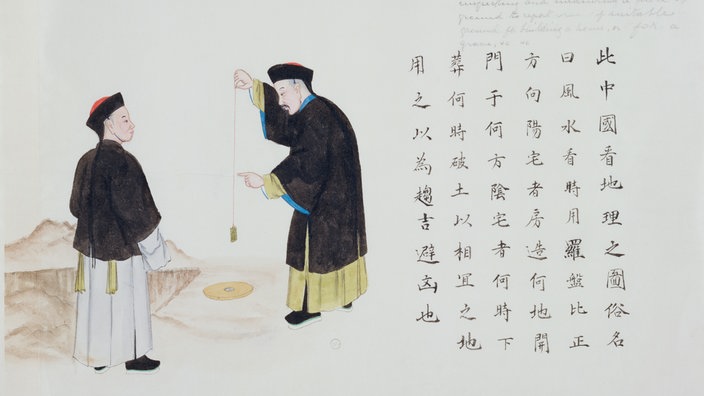 and measuring a
ground to report if suitable
ground for building a house, or for a
grave, &c &c
此中國看地理之圖俗名
曰風水看時用羅盤比正
方向陽宅者房造何地開
門于何方陰宅者何時下
葬何時破土以相宜之地
用之以為趨吉避凶也